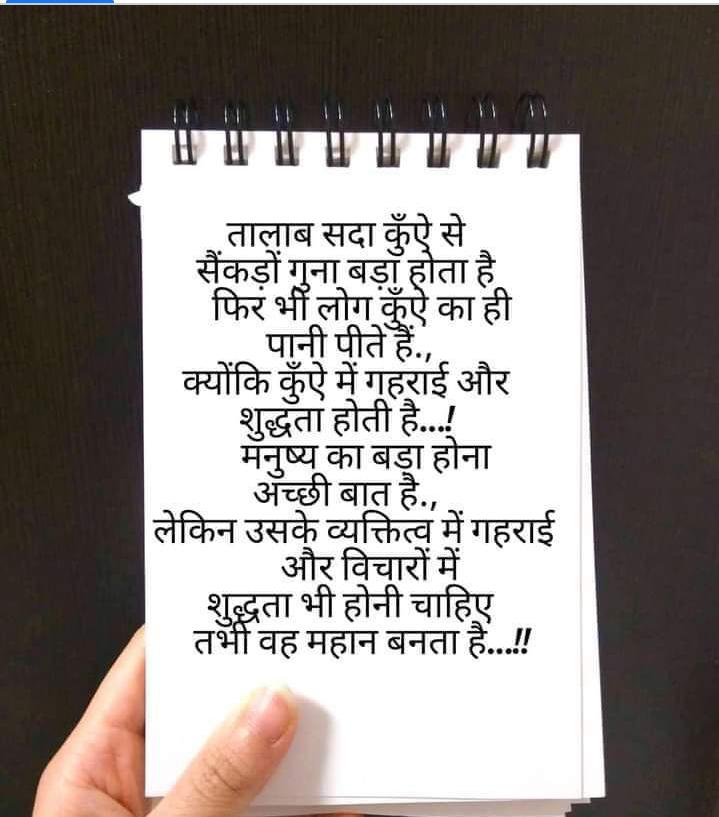 तालाब सदा कुँऐ से
सैंकड़ों गुना बड़ा होता है
फिर भी लोग कुँऐ का ही
पानी पीते हैं.,
क्योंकि कुँऐ में गहराई और
शुद्धता होती है...!
मनुष्य का बड़ा होना
अच्छी बात है.,
लेकिन उसके व्यक्तित्व में गहराई
और विचारों में
शुद्धता भी होनी चाहिए
तभी वह महान बनता है...!!